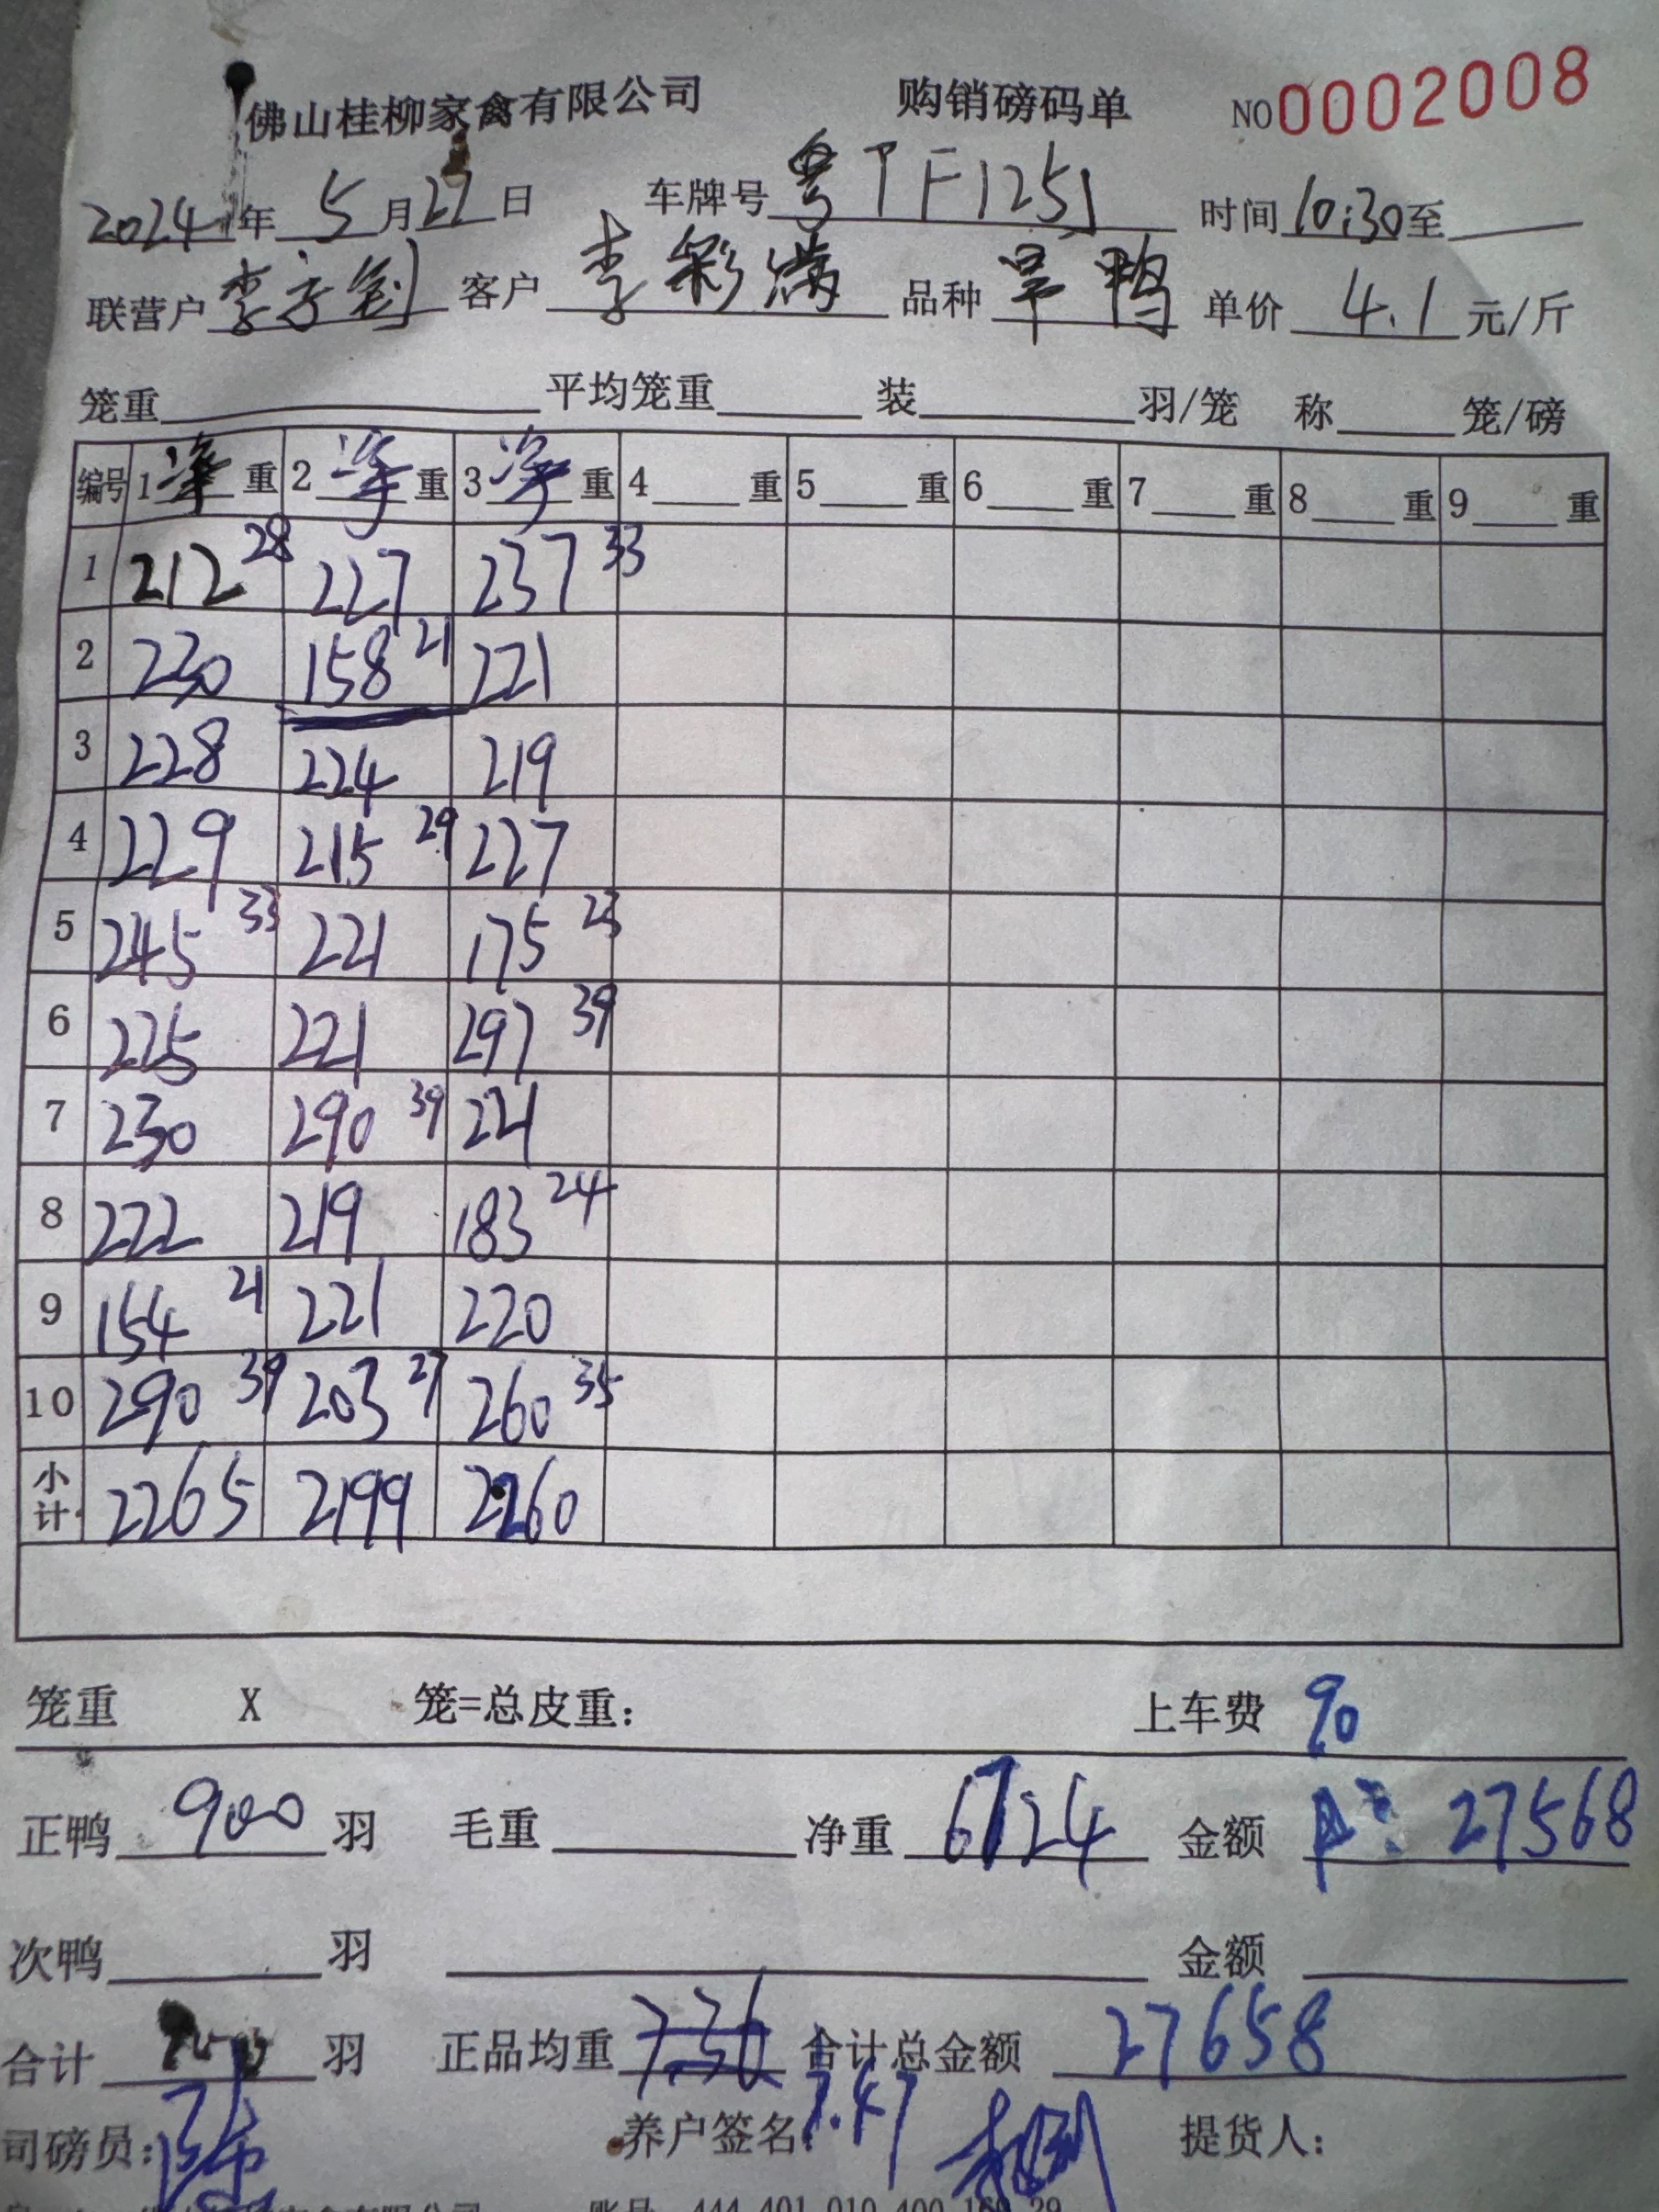 佛山桂柳家禽有限公司 购销磅码单 NO 0002008
2024年 5月27日 车牌号 粤TF125J 时间 10:30至
联营户 李 客户 李彩满 品种 旱鸭 单价 4.1 元/斤
笼重 平均笼重 装 羽/笼 称 笼/磅
编号 1 净 重 2 净 重 3 净 重 4 重 5 重 6 重 7 重 8 重 9 重
1 212 28 227 237 33
2 230 158 21 221
3 228 224 219
4 229 215 29 227
5 245 33 221 175 23
6 225 221 297 39
7 230 290 39 221
8 222 219 183 24
9 154 21 221 220
10 290 39 203 27 260 35
小计 2265 2199 2260
笼重 X 笼=总皮重: 上车费 90
正鸭 900 羽 毛重 净重 6724 金额 27568
次鸭 羽 金额
合计 羽 正品均重 7.36 合计总金额 27658
7.47
司磅员: 养户签名: 提货人:
账号 444 401 010 400 160 29